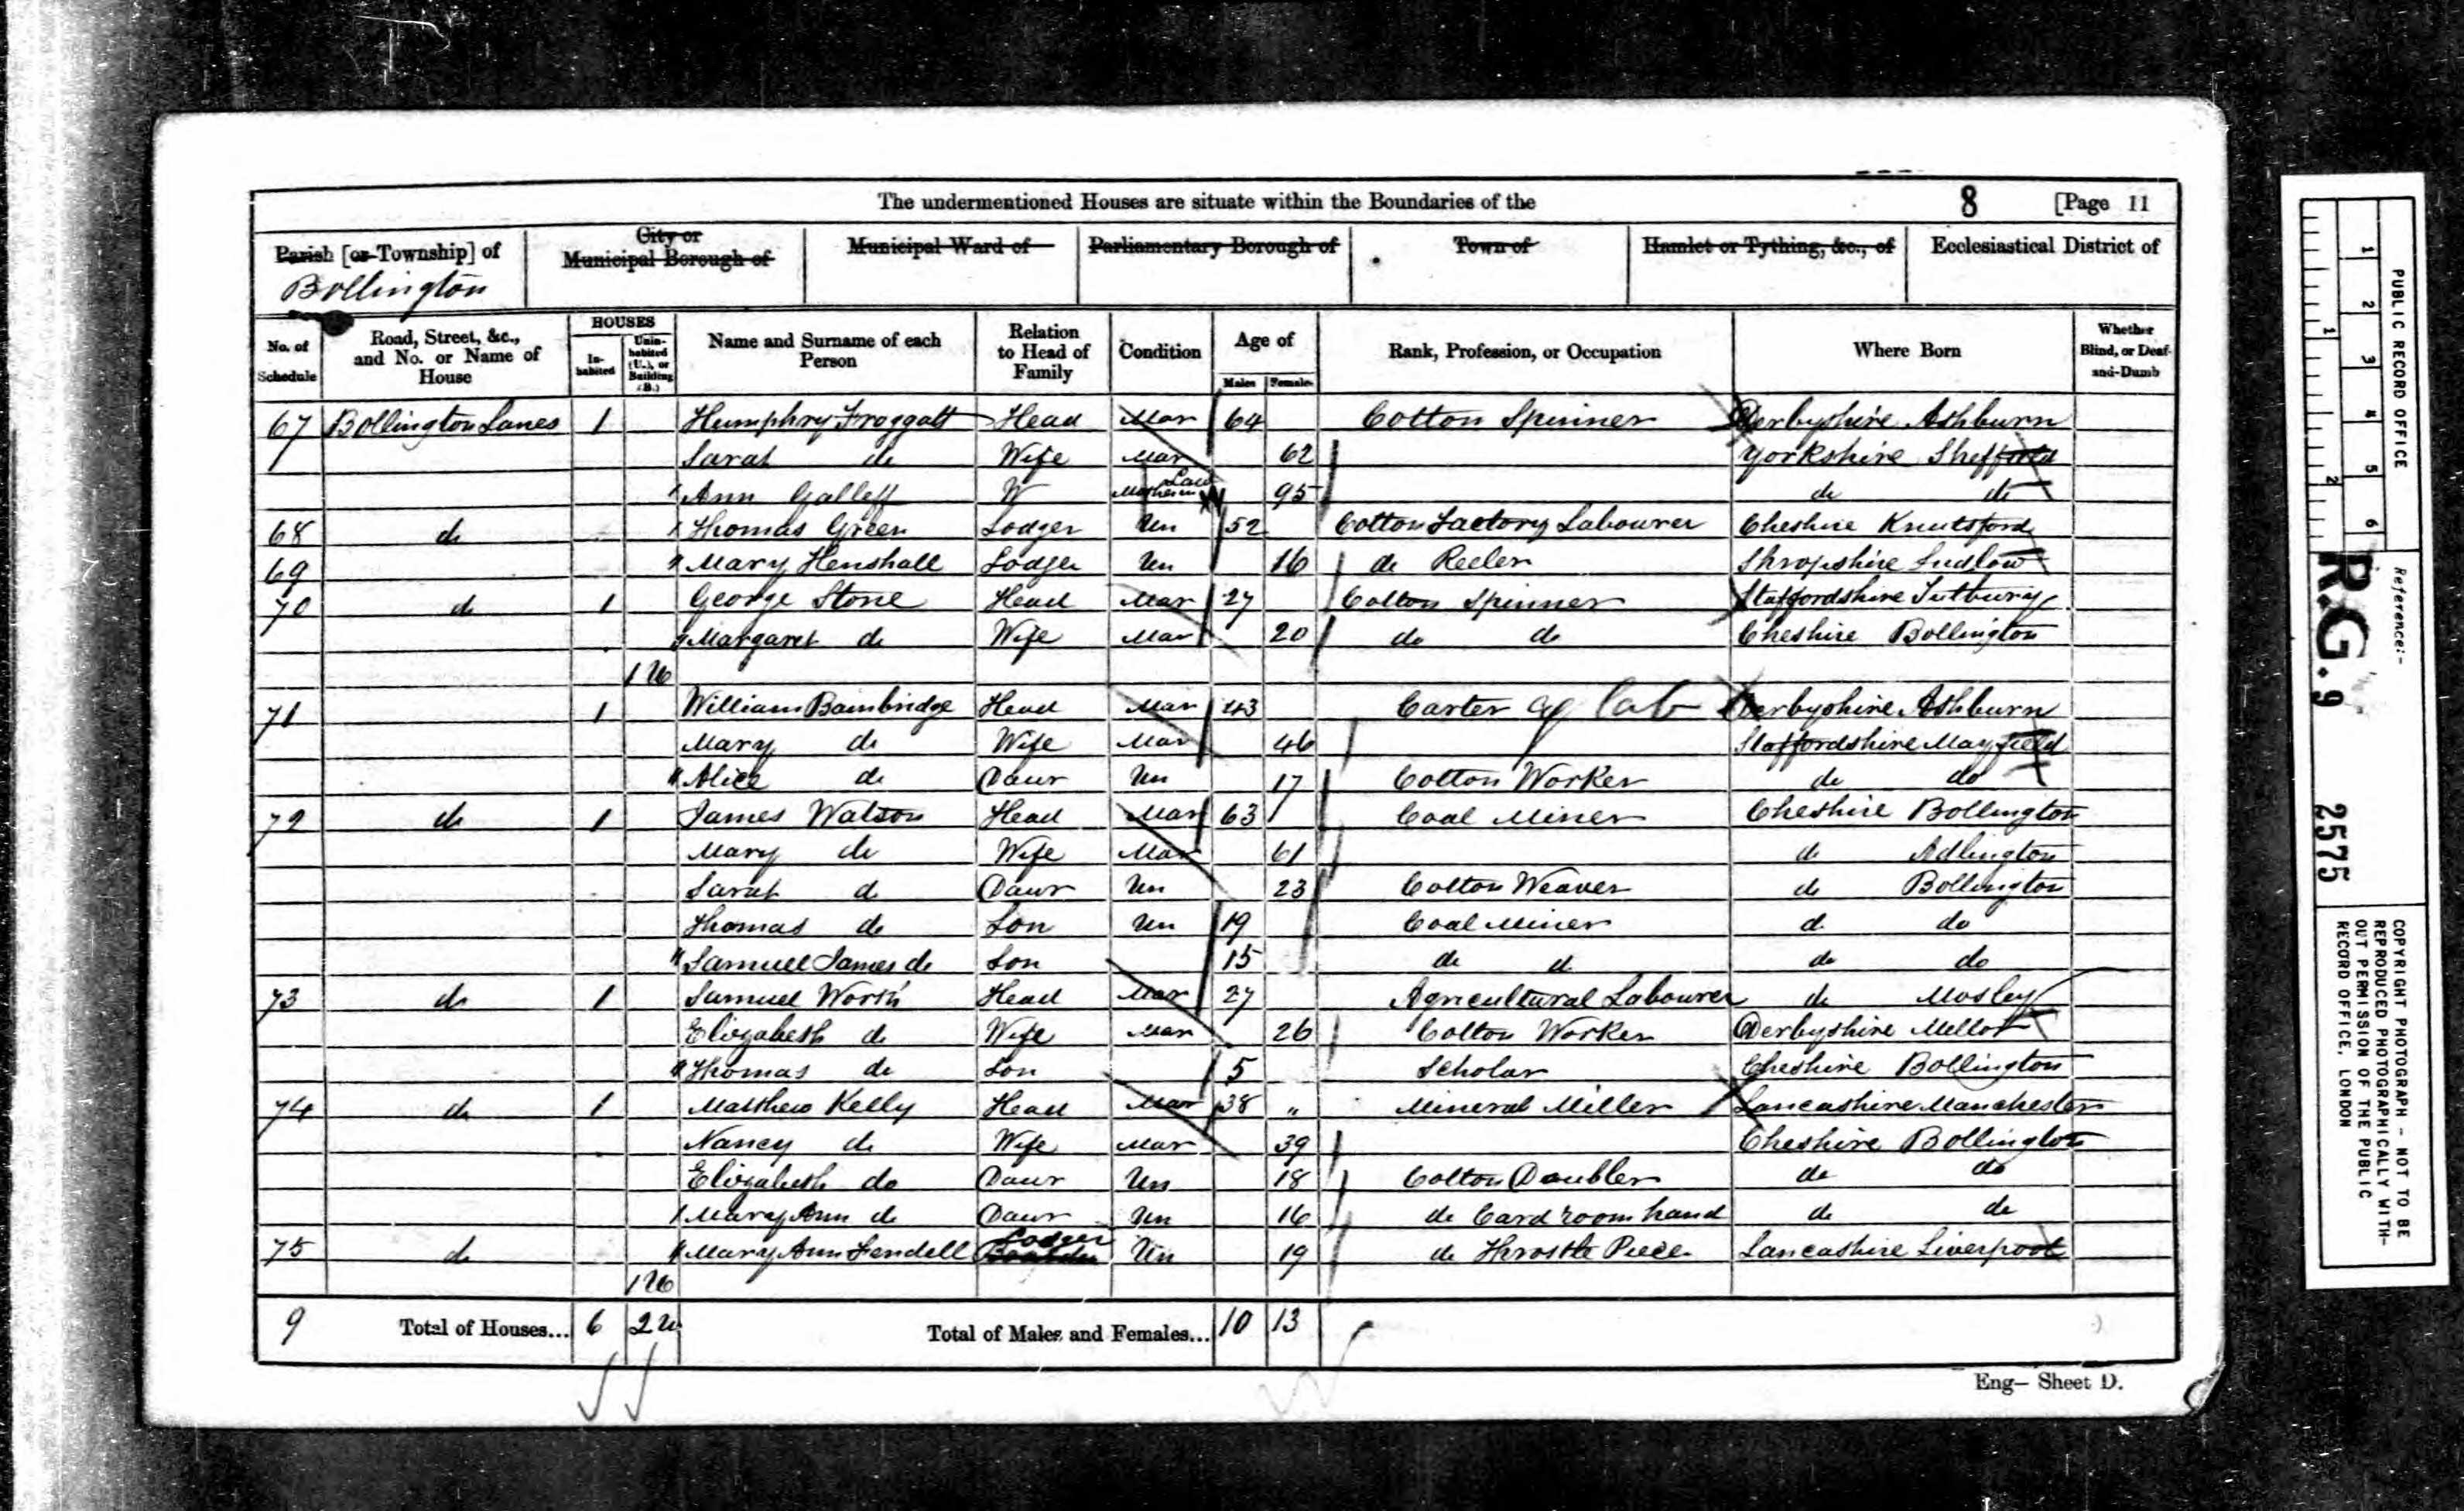 The undermentioned Houses are situate within the Boundaries of the 8 [Page 11
Parish [or Township] of City or Municipal Borough of Municipal Ward of Parliamentary Borough of Town of Hamlet or Tything, &c., of Ecclesiastical District of
Bollington
No. of Schedule Road, Street, &c., and No. or Name of House HOUSES In-habited Unin-habited (U.), or Building (B.) Name and Surname of each Person Relation to Head of Family Condition Age of Males Females Rank, Profession, or Occupation Where Born Whether Blind, or Deaf-and-Dumb
67 Bollington Lanes 1 Humphry Froggatt Head Mar 64 Cotton Spinner Derbyshire Ashburn
Sarah do Wife Mar 62 Yorkshire Sheffield
Ann W Law 95 do do
68 do Thomas Green Lodger Un 52 Cotton Factory Labourer Cheshire Knutsford
69 Mary Henshall Lodger Un 16 do Reeler Shropshire Ludlow
70 do 1 George Stone Head Mar 27 Cotton Spinner Staffordshire Tutbury
Margaret do Wife Mar 20 do do Cheshire Bollington
1 U
71 1 William Bambridge Head Mar 43 Carter ag lab Derbyshire Ashburn
Mary do Wife Mar 46 Staffordshire Mayfield
Alice do Daur Un 17 Cotton Worker do do
72 do 1 James Watson Head Mar 63 Coal Miner Cheshire Bollington
Mary do Wife Mar 61 do Adlington
Sarah do Daur Un 23 Cotton Weaver do Bollington
Thomas do Son Un 19 Coal Miner do do
Samuel James do Son 15 do do do do
73 do 1 Samuel Worth Head Mar 27 Agricultural Labourer do Mosley
Elizabeth do Wife Mar 26 Cotton Worker Derbyshire Mellor
Thomas do Son 5 Scholar Cheshire Bollington
74 do 1 Matthew Kelly Head Mar 38 " Mineral Miller Lancashire Manchester
Nancy do Wife Mar 39 Cheshire Bollington
Elizabeth do Daur Un 18 Cotton Doubler do do
Mary Ann do Daur Un 16 do Card room hand do do
75 do Mary Ann Fendell Lodger Un 19 do Throstle Piecer Lancashire Liverpool
1 U
9 Total of Houses... 6 2 U Total of Males and Females... 10 13
Eng— Sheet D.
PUBLIC RECORD OFFICE
1 2 3 4 5 6
1 2
Reference:-
R.G. 9 2575
COPYRIGHT PHOTOGRAPH - NOT TO BE
REPRODUCED PHOTOGRAPHICALLY WITH-
OUT PERMISSION OF THE PUBLIC
RECORD OFFICE, LONDON